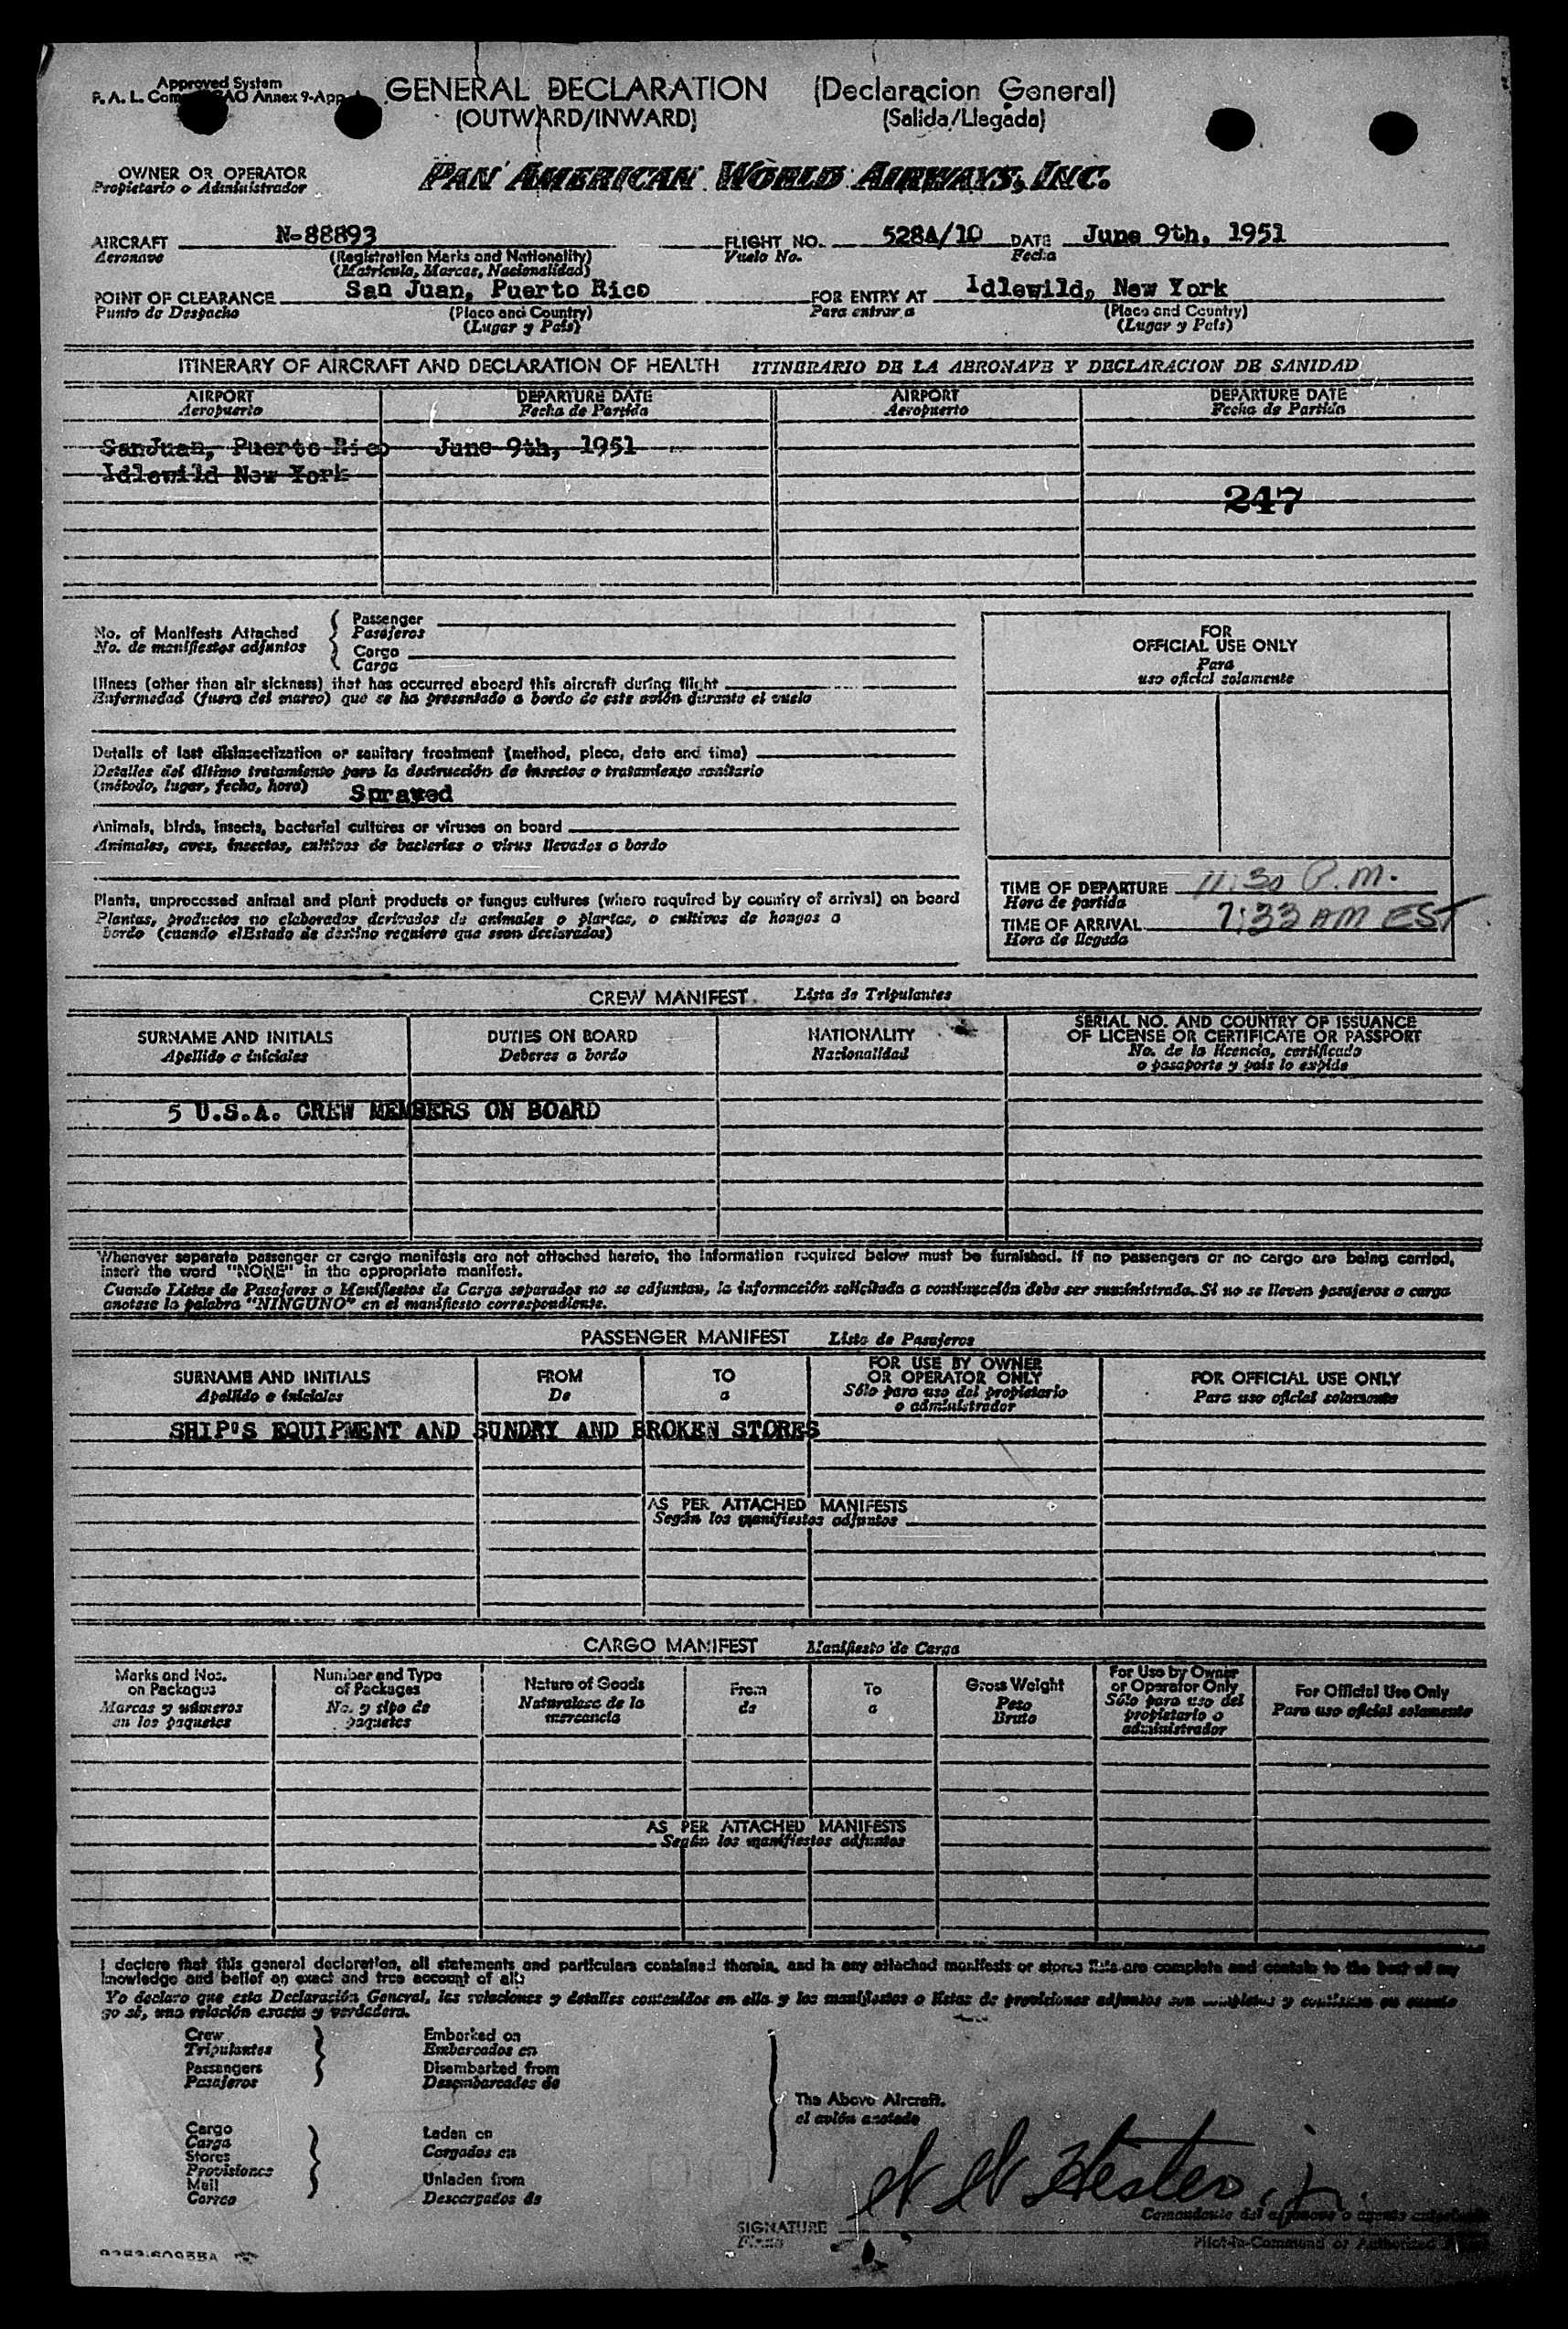 Approved System
F. A. L. Com AO Annex 9-App
GENERAL DECLARATION (Declaracion General)
(OUTWARD/INWARD) (Salida/Llegada)
OWNER OR OPERATOR
Propietario o Administrador
PAN AMERICAN WORLD AIRWAYS, INC.
AIRCRAFT N-88893 FLIGHT NO. 528A/10 DATE June 9th, 1951
Aeronave (Registration Marks and Nationality) Vuelo No. Fecha
(Matricula, Marcas, Nacionalidad)
POINT OF CLEARANCE San Juan, Puerto Rico FOR ENTRY AT Idlewild, New York
Punto de Despacho (Place and Country) Para entrar a (Place and Country)
(Lugar y País) (Lugar y País)
ITINERARY OF AIRCRAFT AND DECLARATION OF HEALTH ITINERARIO DE LA AERONAVE Y DECLARACION DE SANIDAD
AIRPORT DEPARTURE DATE AIRPORT DEPARTURE DATE
Aeropuerto Fecha de Partida Aeropuerto Fecha de Partida
SanJuan, Puerto Rico June 9th, 1951
Idlewild New York
247
No. of Manifests Attached
No. de manifiestos adjuntos
Passenger
Pasajeros
Cargo
Carga
Illness (other than air sickness) that has occurred aboard this aircraft during flight
Enfermedad (fuera del mareo) que se ha presentado a bordo de este avión durante el vuelo
Details of last disinsectization or sanitary treatment (method, place, date and time)
Detalles del último tratamiento para la destrucción de insectos o tratamiento sanitario
(método, lugar, fecha, hora) Sprayed
Animals, birds, insects, bacterial cultures or viruses on board
Animales, aves, insectos, cultivos de bacterias o virus llevados a bordo
Plants, unprocessed animal and plant products or fungus cultures (where required by country of arrival) on board
Plantas, productos no elaborados derivados de animales o plantas, o cultivos de hongos a
bordo (cuando elEstado de destino requiere que sean declarados)
FOR
OFFICIAL USE ONLY
Para
uso oficial solamente
TIME OF DEPARTURE 11:30 P.M.
Hora de partida
TIME OF ARRIVAL 7:33 AM EST
Hora de llegada
CREW MANIFEST Lista de Tripulantes
SURNAME AND INITIALS DUTIES ON BOARD NATIONALITY SERIAL NO. AND COUNTRY OF ISSUANCE
OF LICENSE OR CERTIFICATE OR PASSPORT
Apellido e iniciales Deberes a bordo Nacionalidad No. de la licencia, certificado
o pasaporte y país lo expide
5 U.S.A. CREW MEMBERS ON BOARD
Whenever separate passenger or cargo manifests are not attached hereto, the information required below must be furnished. If no passengers or no cargo are being carried,
insert the word "NONE" in the appropriate manifest.
Cuando Listas de Pasajeros o Manifiestos de Carga separados no se adjuntan, la información solicitada a continuación debe ser suministrada. Si no se lleven pasajeros o carga
anotese la palabra "NINGUNO" en el manifiesto correspondiente.
PASSENGER MANIFEST Lista de Pasajeros
SURNAME AND INITIALS FROM TO FOR USE BY OWNER
OR OPERATOR ONLY FOR OFFICIAL USE ONLY
Apellido e iniciales De a Sólo para uso del propietario
o administrador Para uso oficial solamente
SHIP'S EQUIPMENT AND SUNDRY AND BROKEN STORES
AS PER ATTACHED MANIFESTS
Según los manifiestos adjuntos
CARGO MANIFEST Manifiesto de Carga
Marks and Nos.
on Packages
Marcas y números
en los paquetes
Number and Type
of Packages
No. y tipo de
paquetes
Nature of Goods
Naturaleza de la
mercancia
From
de
To
a
Gross Weight
Peso
Bruto
For Use by Owner
or Operator Only
Sólo para uso del
propietario o
administrador
For Official Use Only
Para uso oficial solamente
AS PER ATTACHED MANIFESTS
Según los manifiestos adjuntos
I declare that this general declaration, all statements and particulars contained therein, and in any attached manifests or stores lists are complete and contain to the best of my
knowledge and belief an exact and true account of all:
Yo declaro que esta Declaración General, las relaciones y detalles contenidos en ella y los manifiestos o listas de provisiones adjuntos son completos y contienen en cuanto
yo sé, una relación exacta y verdadera.
Crew
Tripulantes
Passengers
Pasajeros
Embarked on
Embarcados en
Disembarked from
Desembarcados de
The Above Aircraft.
el avión anotado
Cargo
Carga
Stores
Provisiones
Mail
Correo
Laden on
Cargados en
Unladen from
Descargados de
Hester, jr.
SIGNATURE
Firma
Comandante del aeronave o agente
Pilot-in-Command or Authorized